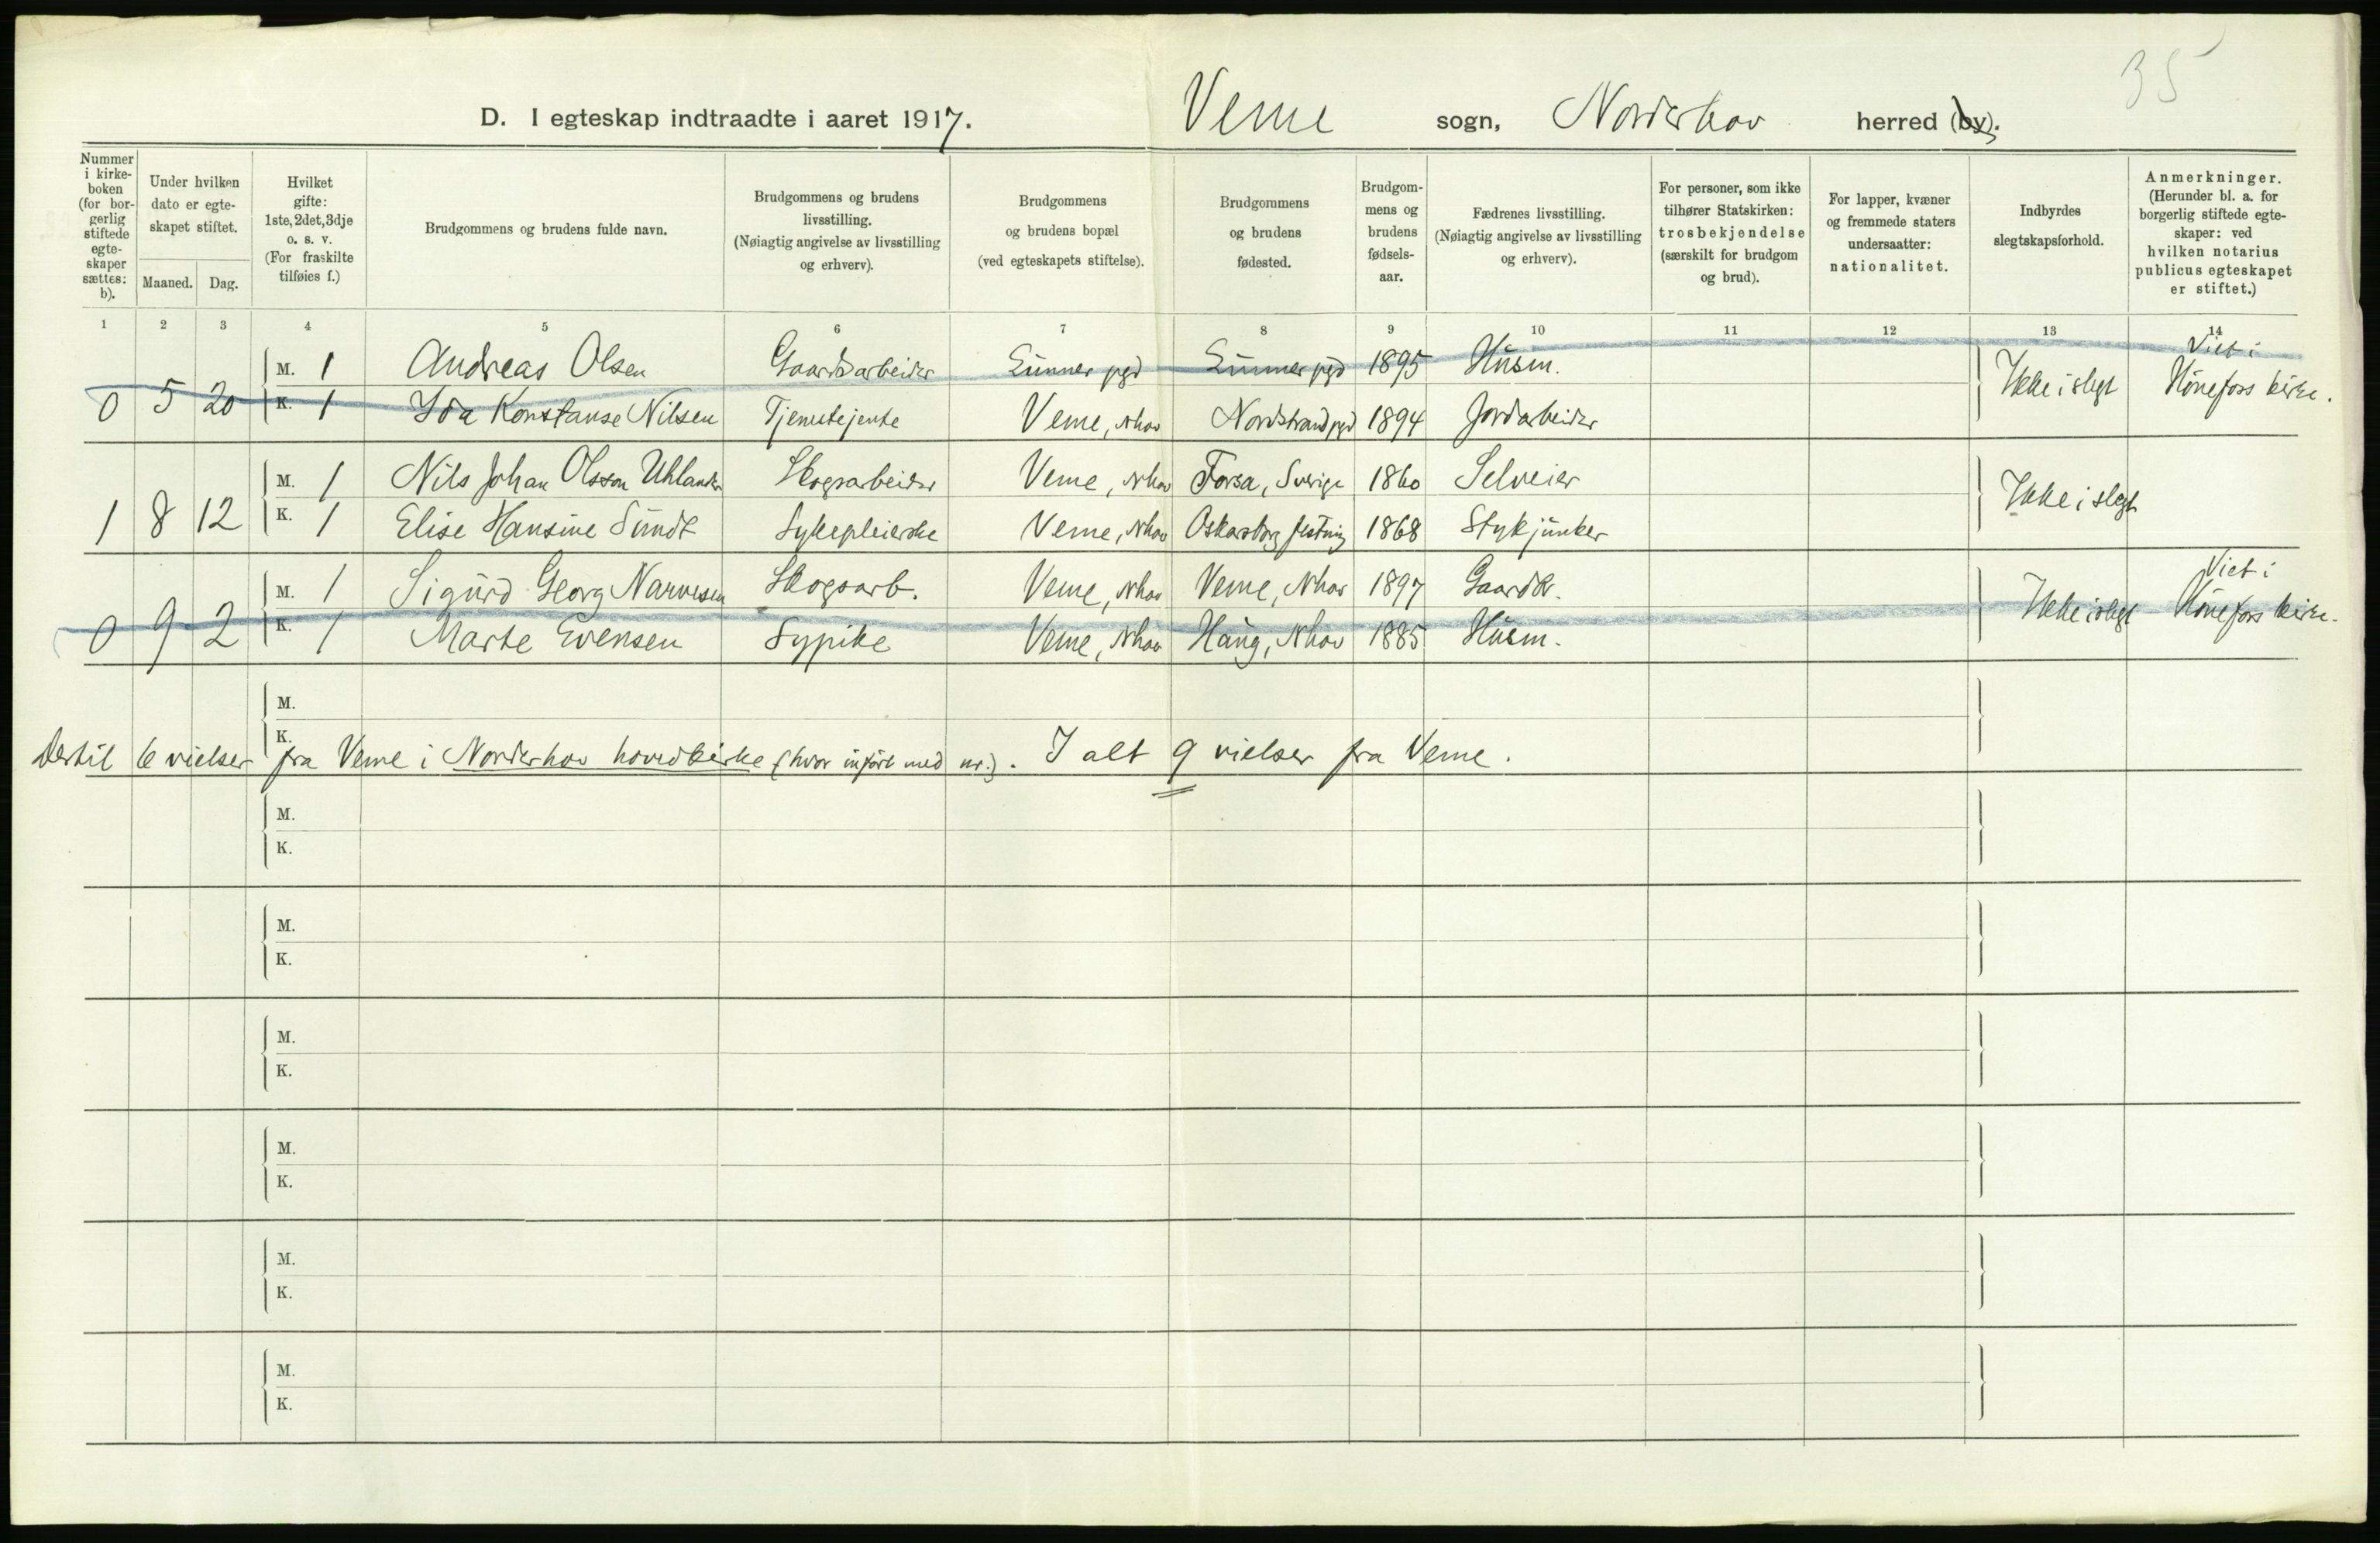 35
D. I egteskap indtraadte i aaret 1917. Veme sogn, Norderhov herred (by).
Nummer i kirke-boken (for bor-gerlig stiftede egte-skaper sættes: b).
Under hvilken dato er egte-skapet stiftet.
Maaned. Dag.
Hvilket gifte: 1ste, 2det, 3dje o. s. v. (For fraskilte tilføies f.)
Brudgommens og brudens fulde navn.
Brudgommens og brudens livsstilling. (Nøiagtig angivelse av livsstilling og erhverv).
Brudgommens og brudens bopæl (ved egteskapets stiftelse).
Brudgommens og brudens fødested.
Brudgom-mens og brudens fødsels-aar.
Fædrenes livsstilling. (Nøiagtig angivelse av livsstilling og erhverv).
For personer, som ikke tilhører Statskirken: trosbekjendelse (særskilt for brudgom og brud).
For lapper, kvæner og fremmede staters undersaatter: nationalitet.
Indbyrdes slegtskapsforhold.
Anmerkninger. (Herunder bl. a. for borgerlig stiftede egte-skaper: ved hvilken notarius publicus egteskapet er stiftet.)
1 2 3 4 5 6 7 8 9 10 11 12 13 14
M. 1 Andreas Olsen Gaardsarbeider Lunner pgd Lunner pgd 1895 Husm. Ikke i slegt Viet i
0 5 20 K. 1 Ida Konstanse Nilsen Tjenestejente Veme, Nhov Nordstrand pgd 1894 Jordarbeider Hönefoss kirke.
M. 1 Nils Johan Olsson Uhlander Skogsarbeider Veme, Nhov Forsa, Sverige 1860 Selveier Ikke i slegt
1 8 12 K. 1 Elise Hansine Sundt Sykepleierske Veme, Nhov Oskarsborg festning 1868 Stykjunker
M. 1 Sigurd Georg Narvesen Skogsarb. Veme, Nhov Veme, Nhov 1897 Gaardbr. Ikke i slegt Viet i
0 9 2 K. 1 Marte Evensen Sypike Veme, Nhov Haug, Nhov 1885 Husm. Hönefoss kirke.
M.
K.
Dertil 6 vielser fra Veme i Norderhov hovedkirke (hvor inført med nr.). I alt 9 vielser fra Veme.
M.
K.
M.
K.
M.
K.
M.
K.
M.
K.
M.
K.